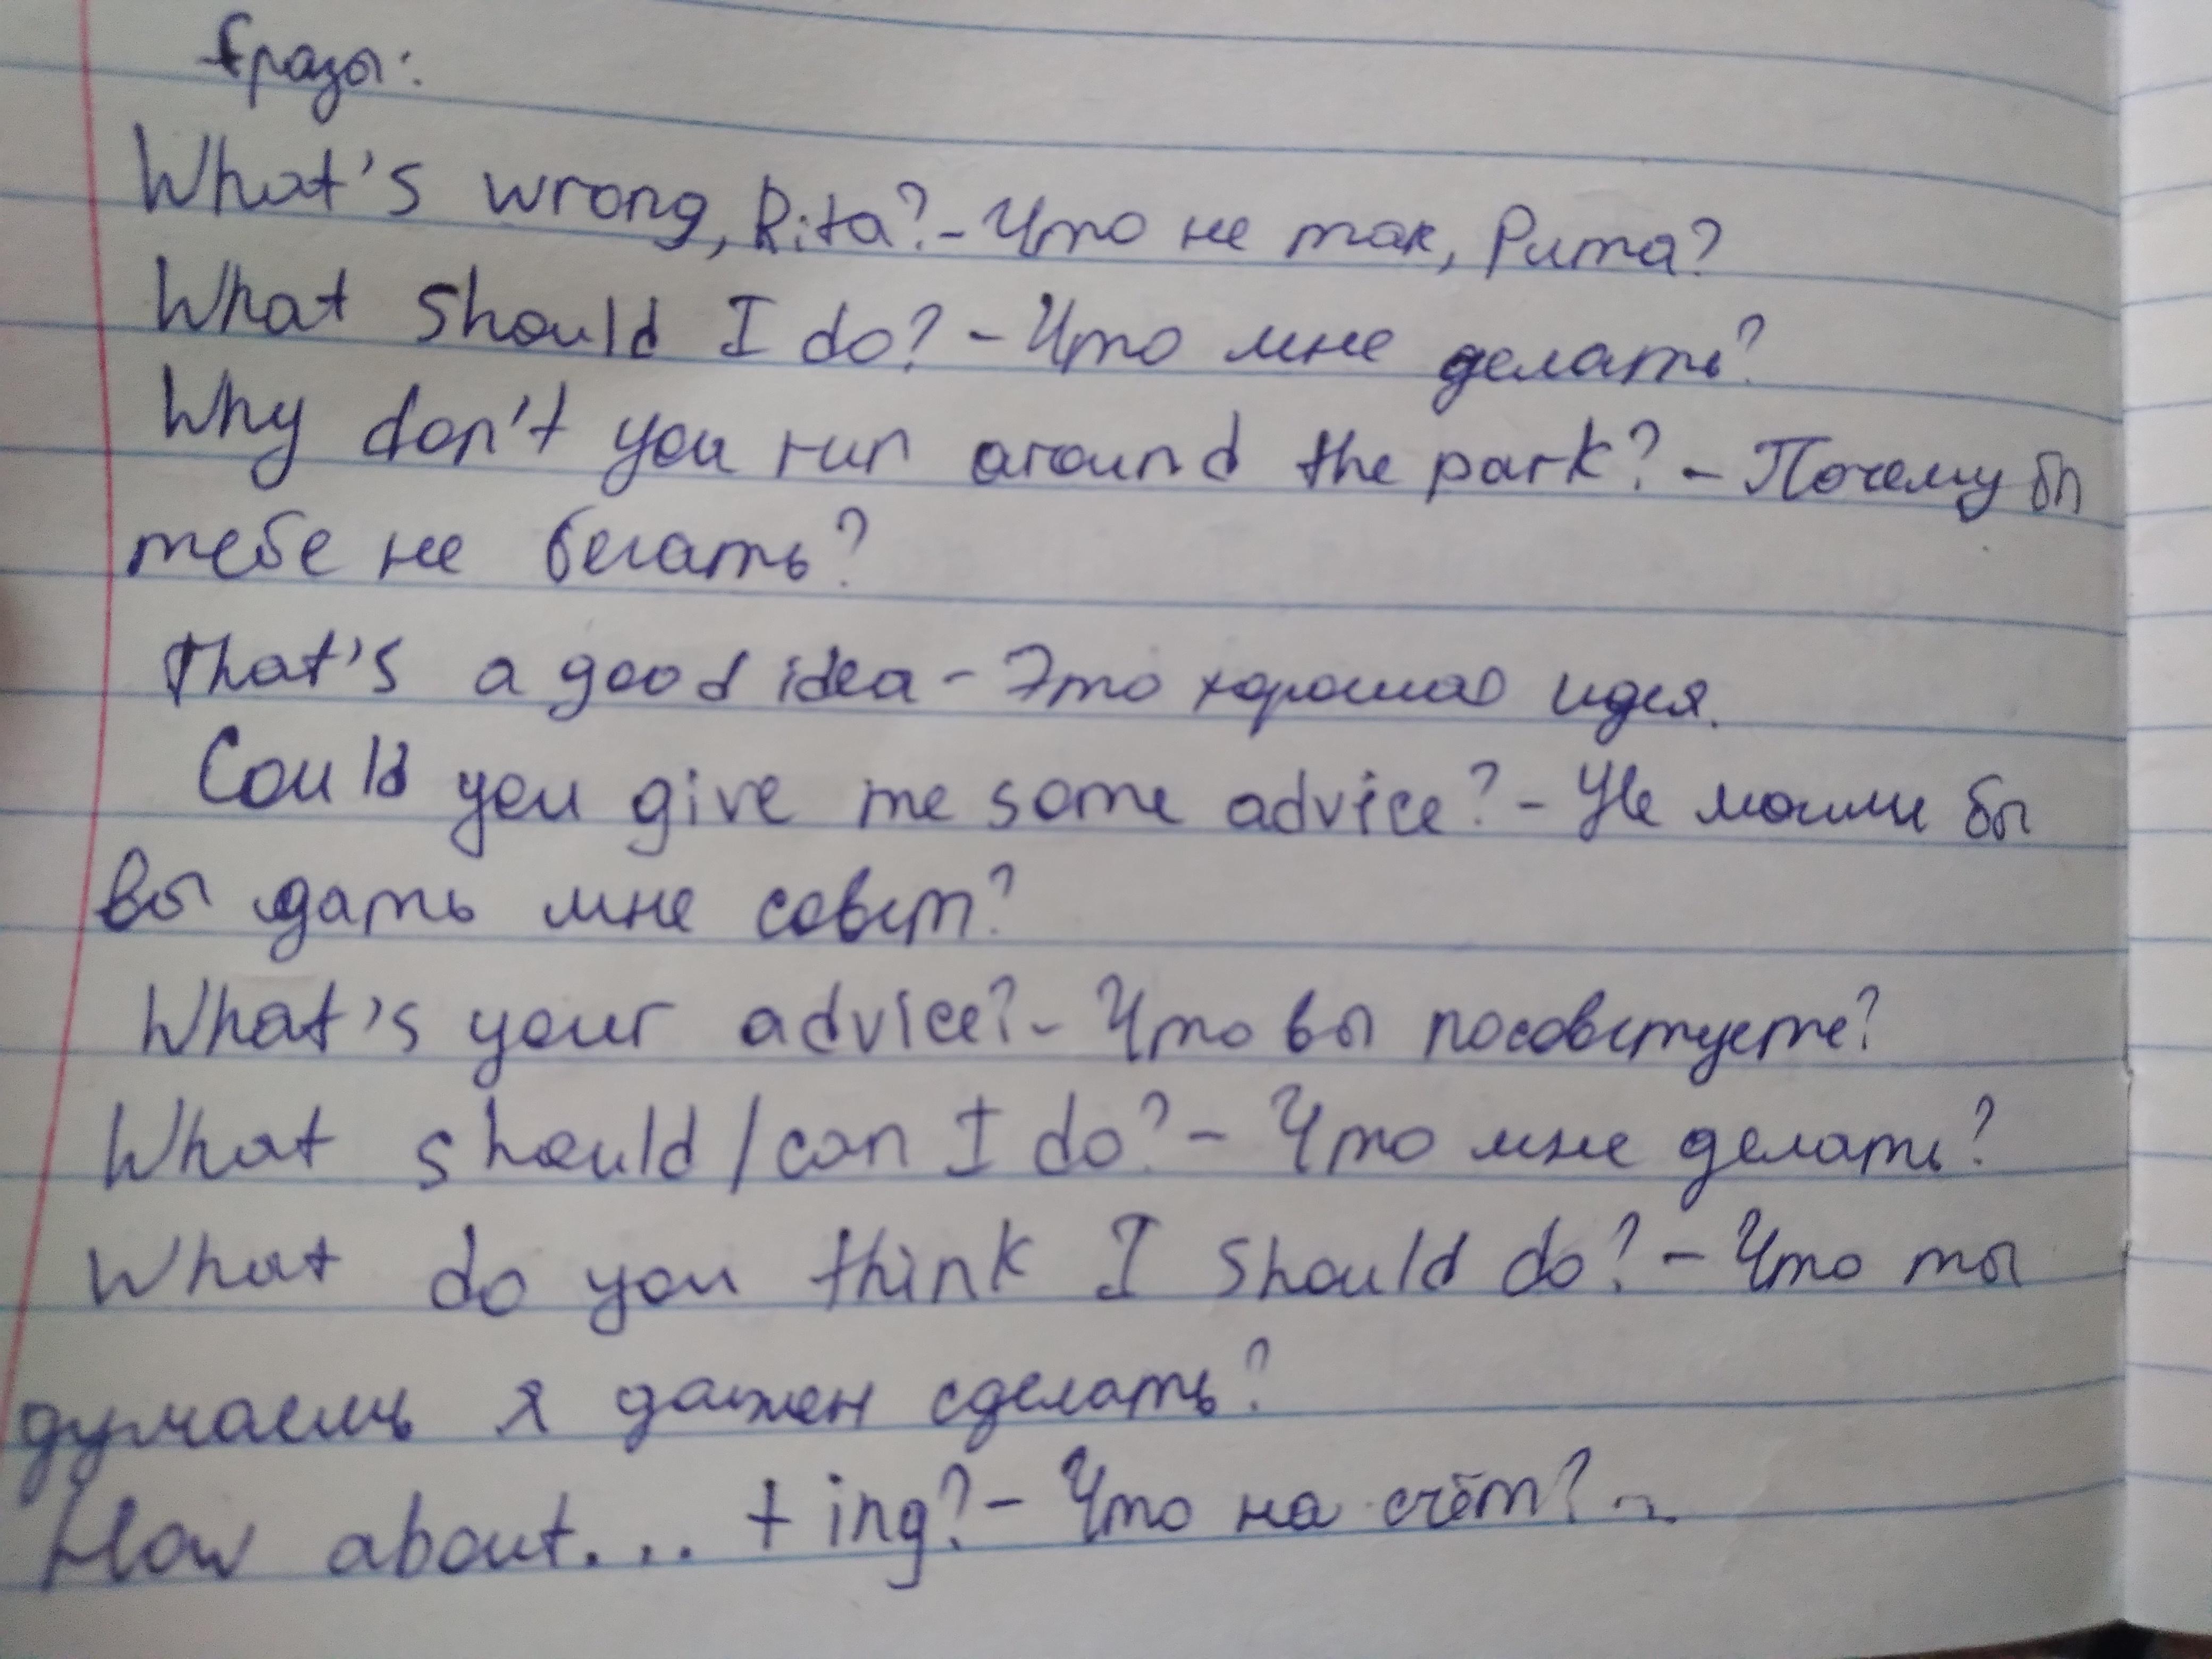 фразы:
What's wrong, Rita? - Что не так, Рита?
What should I do? - Что мне делать?
Why don't you run around the park? - Почему бы
тебе не бегать?
That's a good idea - Это хорошая идея.
Could you give me some advice? - Не могли бы
вы дать мне совет?
What's your advice? - Что вы посоветуете?
What should/can I do? - Что мне делать?
What do you think I should do? - Что ты
думаешь я должен сделать?
How about... + ing? - Что на счёт?